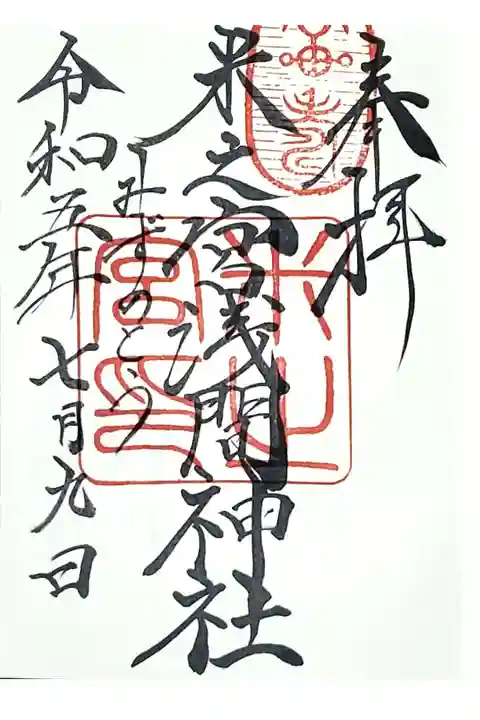 奉拝
米之宮浅間神社
みずのとう
令和五年 七月九日
米之
宮印